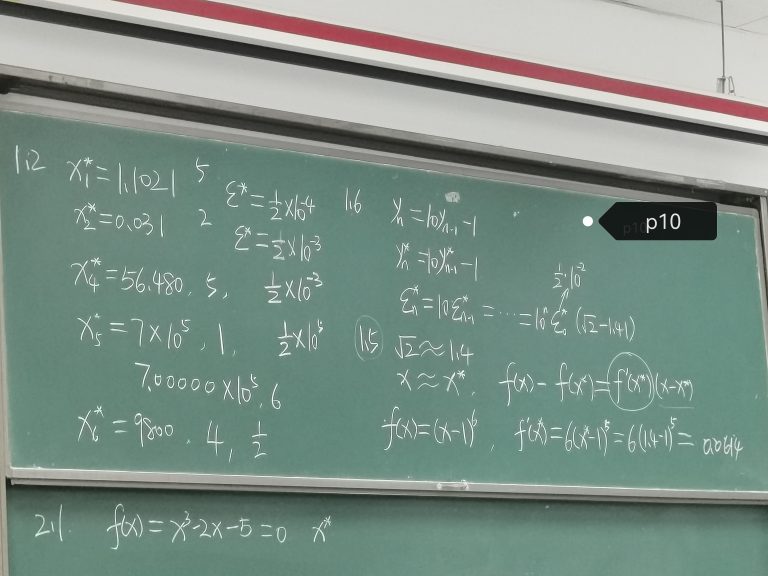 1.2 x₁* = 1.1021 5 ε* = ½×10⁻⁴
x₂* = 0.031 2 ε* = ½×10⁻³
x₄* = 56.480, 5, ½×10⁻³
x₅* = 7×10⁵, 1, ½×10⁵
7.00000×10⁵, 6
x₆* = 9800, 4, ½
1.6 yₙ = 10yₙ₋₁ - 1
yₙ* = 10yₙ₋₁* - 1
½·10⁻²
εₙ* = 10εₙ₋₁* = ⋯ = 10ⁿε₀* (√2 - 1.41)
1.5 √2 ≈ 1.4
x ≈ x*, f(x) - f(x*) = f'(x*)(x - x*)
f(x) = (x-1)⁶, f'(x*) = 6(x*-1)⁵ = 6(1.4-1)⁵ = 0.0614
p10
2.1. f(x) = x³-2x-5 = 0 x*